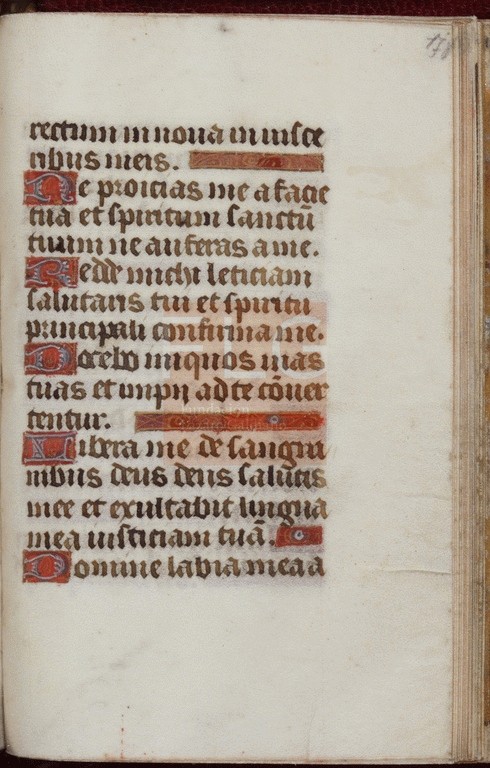 178
rectum innova in visce
ribus meis.
Ne proicias me a facie
tua et spiritum sanctū
tuum ne auferas a me.
Redde michi leticiam
salutaris tui et spiritu
principali confirma me.
Docebo iniquos vias
tuas et impij ad te cōver
tentur.
Libera me de sangui
nibus deus deus salutis
mee et exultabit lingua
mea iusticiam tuā.
Domine labia mea a